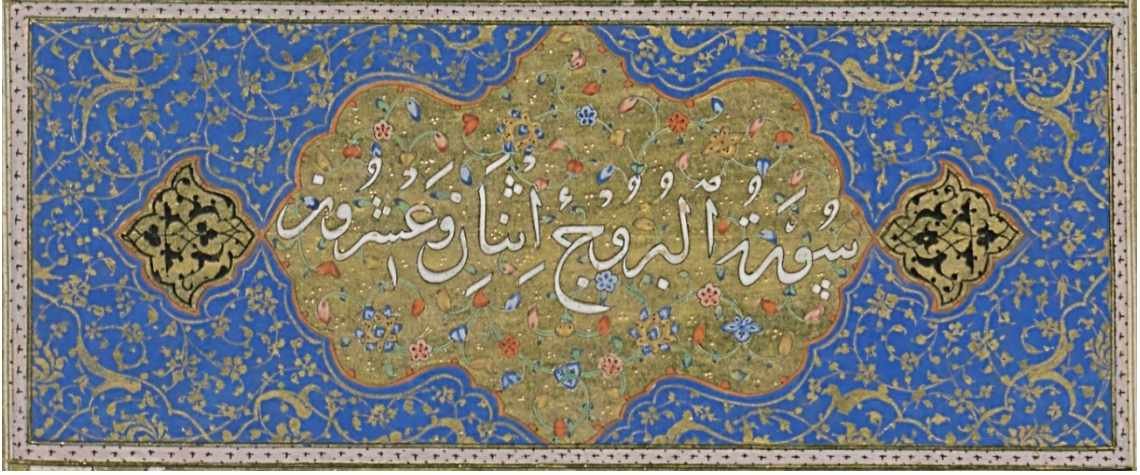 سُورَةُ الْبُرُوجِ اثْنَانِ وَعِشْرُونَ